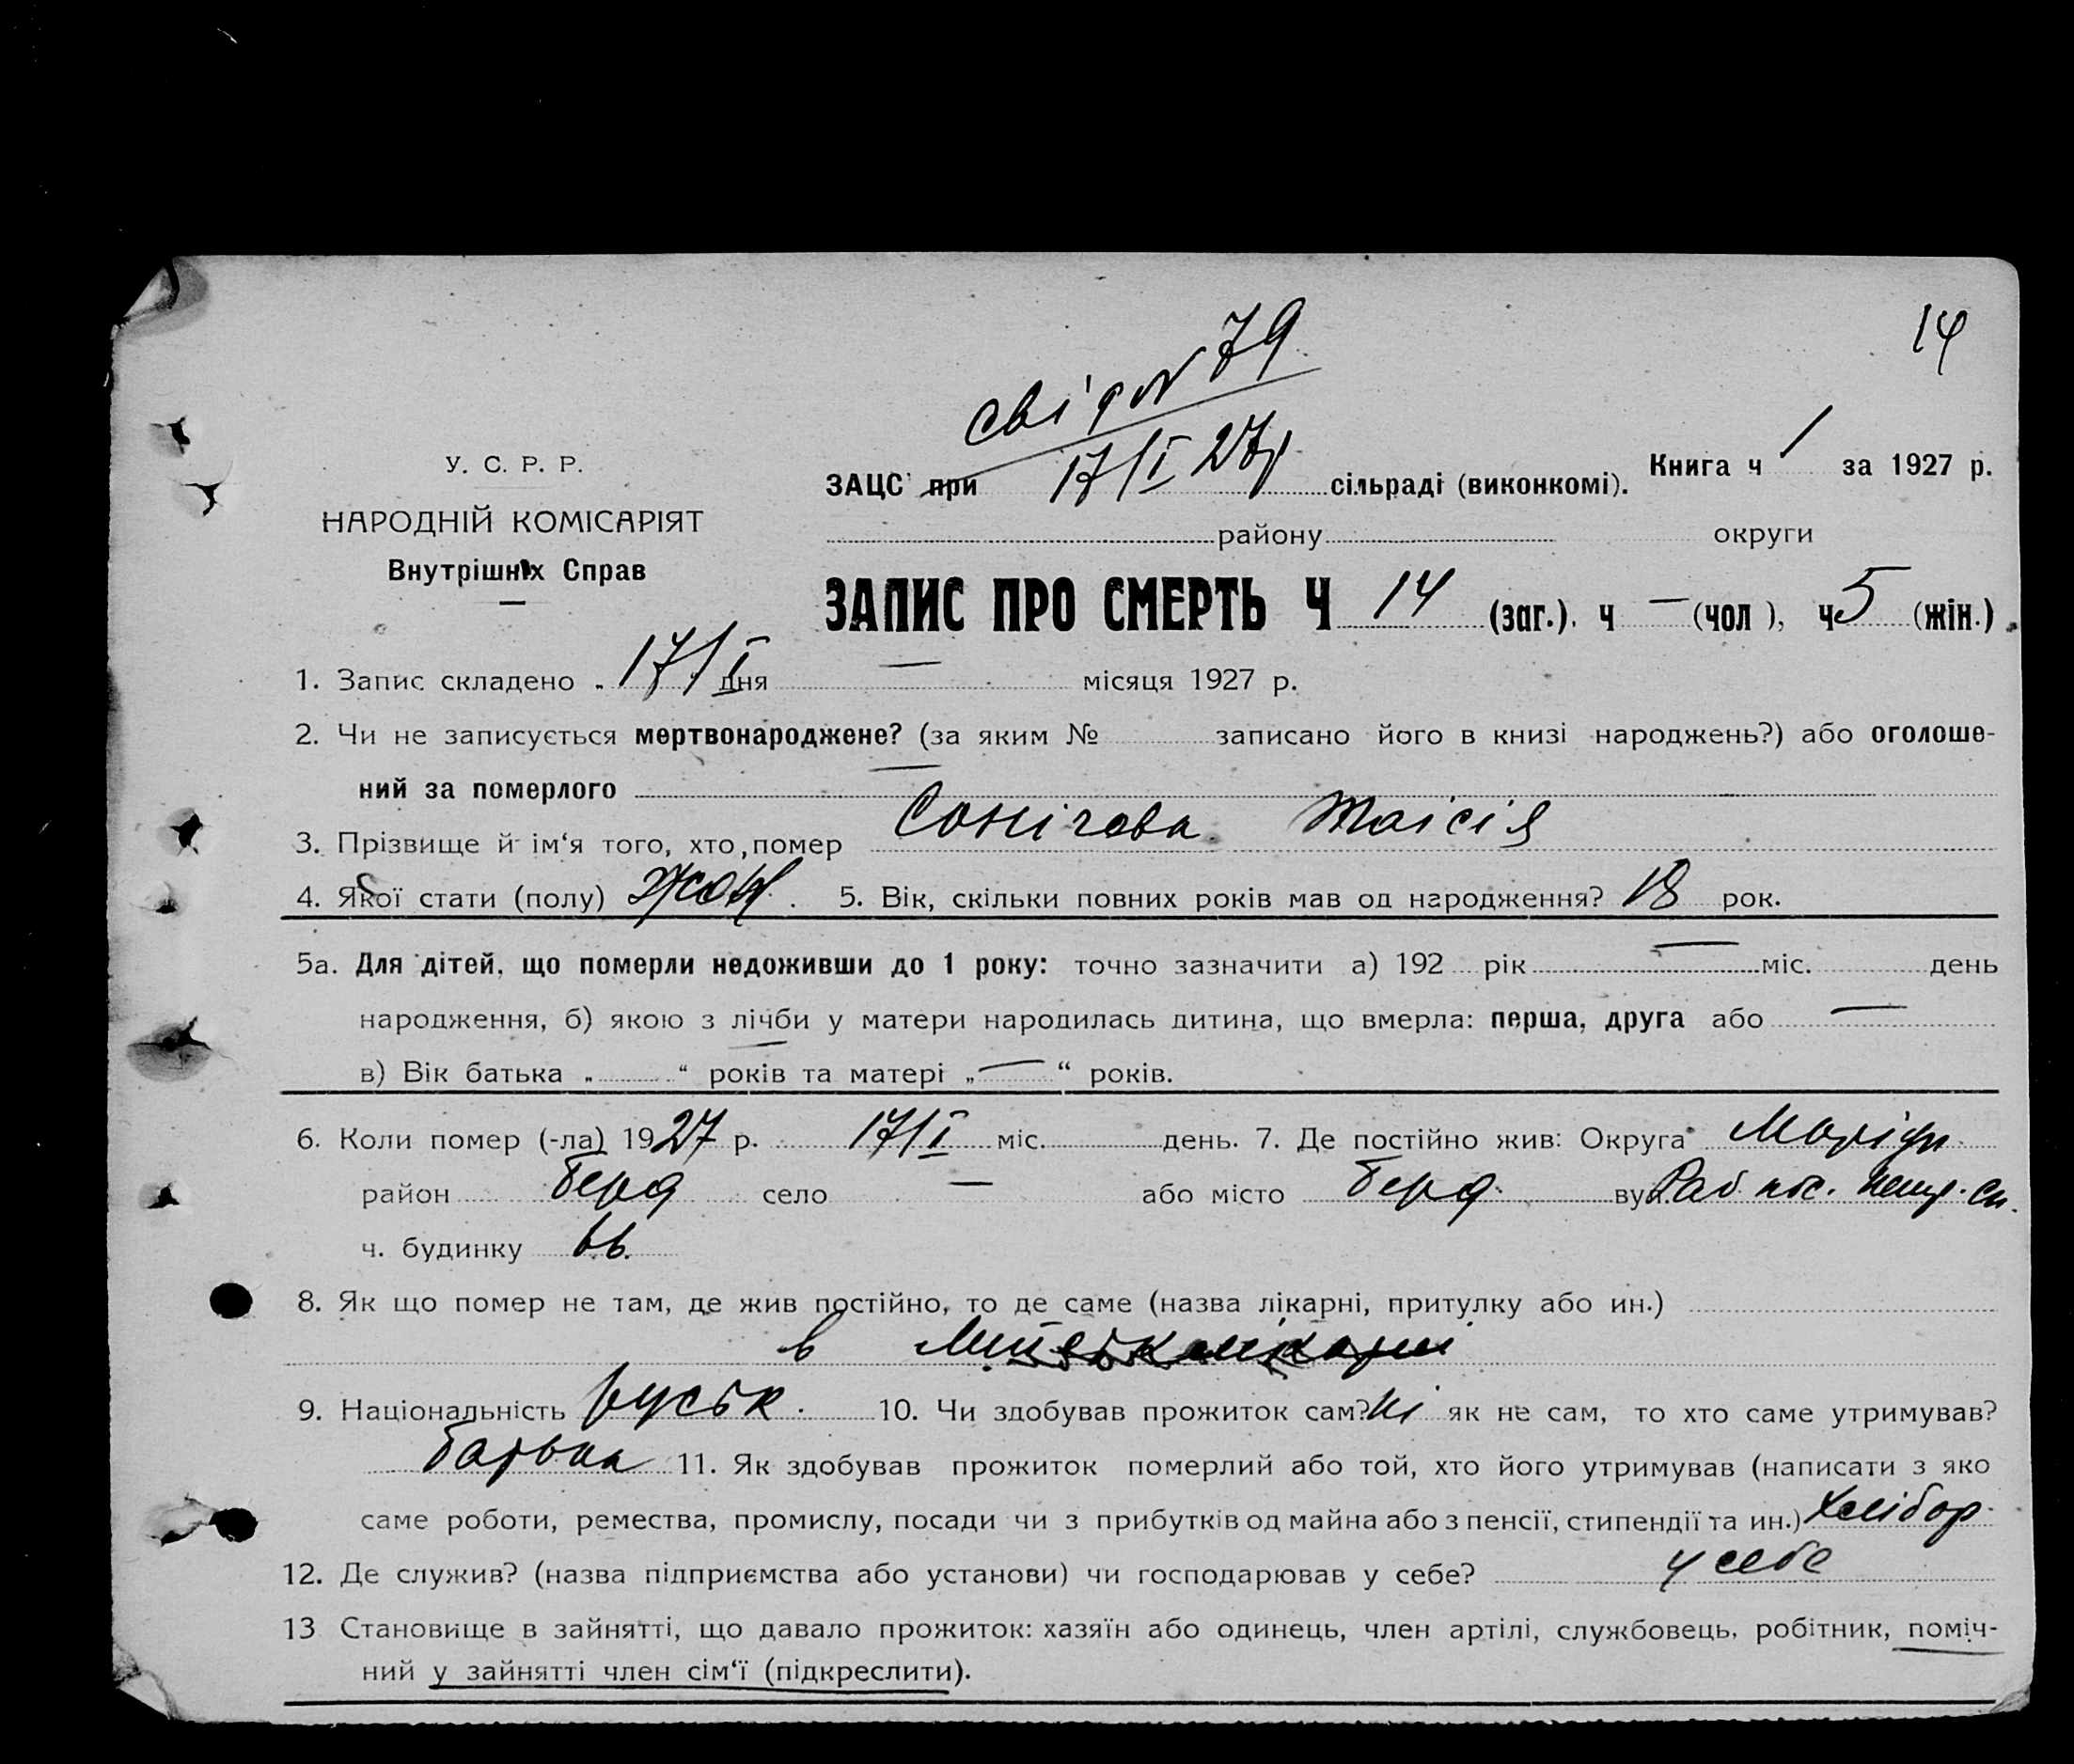 14
свід № 79
17/I 27р
У. С. Р. Р.
НАРОДНІЙ КОМІСАРІЯТ
Внутрішніх Справ
ЗАЦС при сільраді (виконкомі). Книга ч 1 за 1927 р.
району округи
ЗАПИС ПРО СМЕРТЬ Ч 14 (заг.). ч — (чол ), ч 5 (жін.)
1. Запис складено „ 17/I дня — місяця 1927 р.
2. Чи не записується мертвонароджене? (за яким № записано його в книзі народжень?) або оголоше-
ний за померлого —
3. Прізвище й ім‘я того, хто помер Сонічева Таісія
4. Якої стати (полу) жон. 5. Вік, скільки повних років мав од народження? 18 рок.
5а. Для дітей, що померли недоживши до 1 року: точно зазначити а) 192 рік — міс. день
народження, б) якою з лічби у матери народилась дитина, що вмерла: перша, друга або —
в) Вік батька „ — “ років та матері „ — “ років.
6. Коли помер (-ла) 1927 р. 17/I міс. день. 7. Де постійно жив: Округа Маріуп.
район Берд село — або місто Берд. вул. Раб. пос.
ч. будинку
8. Як що помер не там, де жив постійно, то де саме (назва лікарні, притулку або ин.)
в
9. Національність руськ. 10. Чи здобував прожиток сам? Ні як не сам, то хто саме утримував?
батька 11. Як здобував прожиток померлий або той, хто його утримував (написати з яко
саме роботи, ремества, промислу, посади чи з прибутків од майна або з пенсії, стипендії та ин.) хлібор.
12. Де служив? (назва підприємства або установи) чи господарював у себе? у себе
13 Становище в зайнятті, що давало прожиток: хазяїн або одинець, член артілі, службовець, робітник, поміч-
ний у зайнятті член сім‘ї (підкреслити).